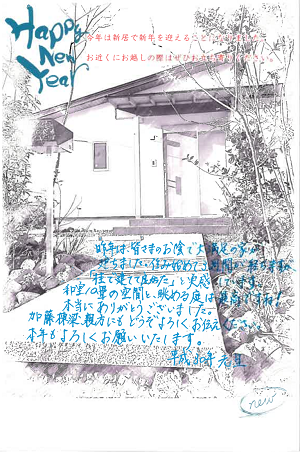 Happy
New
Year
今年は新居で新年を迎えることに
お近くにお越しの際はぜひお立ち寄りください。
昨年は皆さまのお陰で大満足の家が
建ちました。住み始めて
「建て
和室10畳の空間と、眺める庭は最高ですね!
本当にありがとうございました。
加藤棟梁、親方にもどうぞよろしくお伝えください。
本年もよろしくお願いいたします。
平成 年 元旦
new